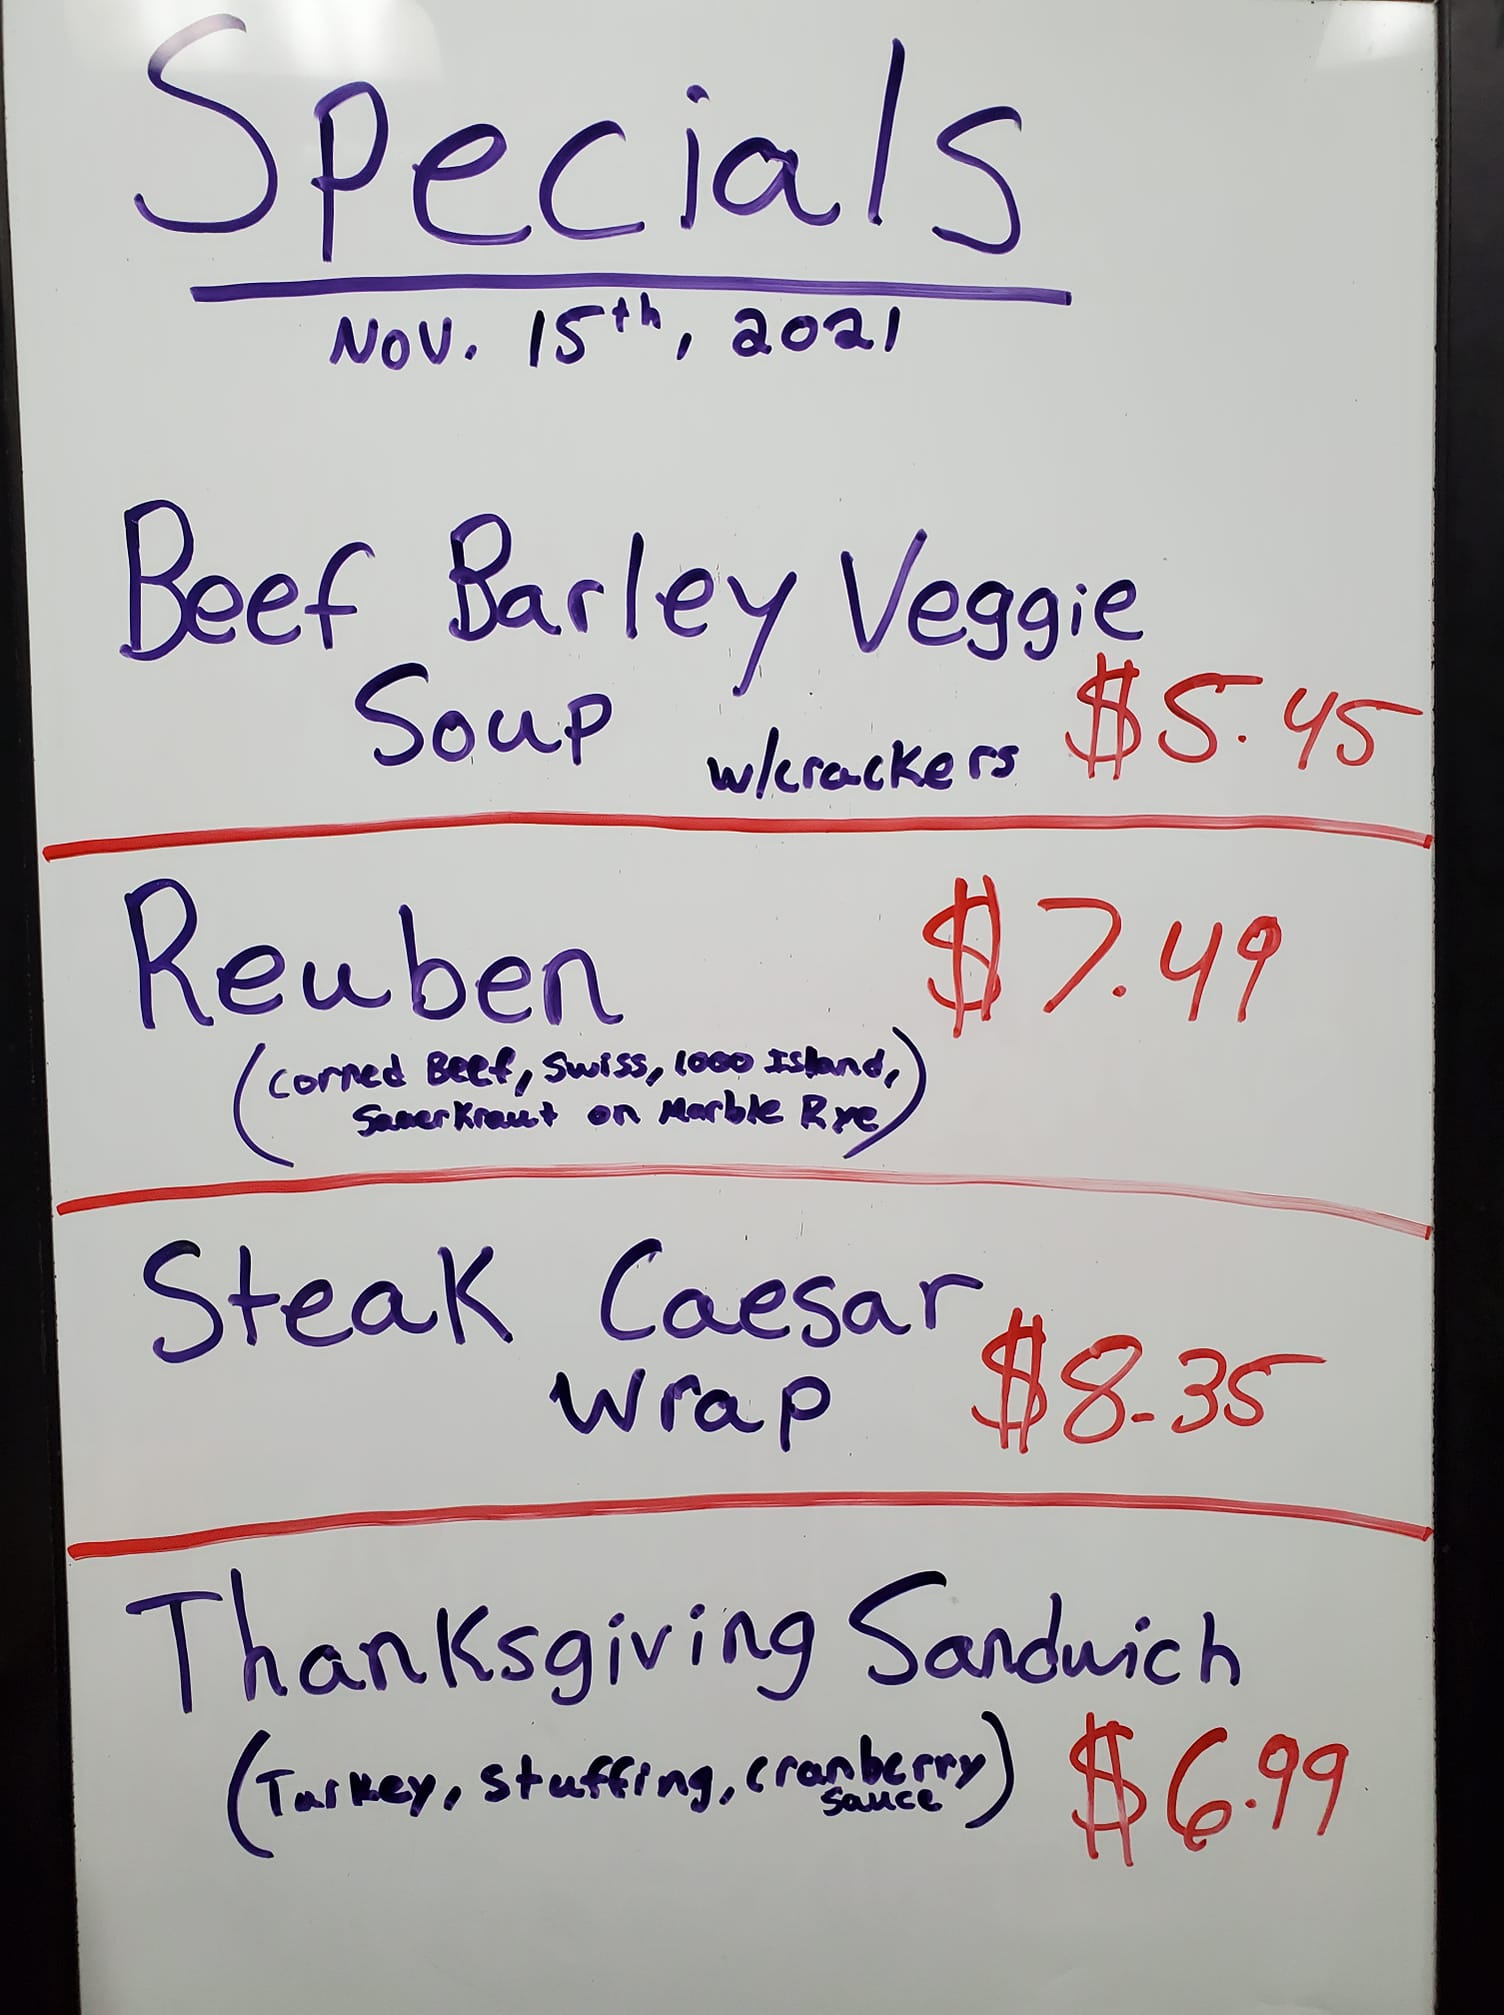 Specials
Nov. 15th, 2021
Beef Barley Veggie
Soup w/crackers $5.45
Reuben $7.49
(Corned Beef, Swiss, 1000 Island,
Sauerkraut on Marble Rye)
Steak Caesar
Wrap $8.35
Thanksgiving Sandwich
(Turkey, stuffing, cranberry
sauce) $6.99